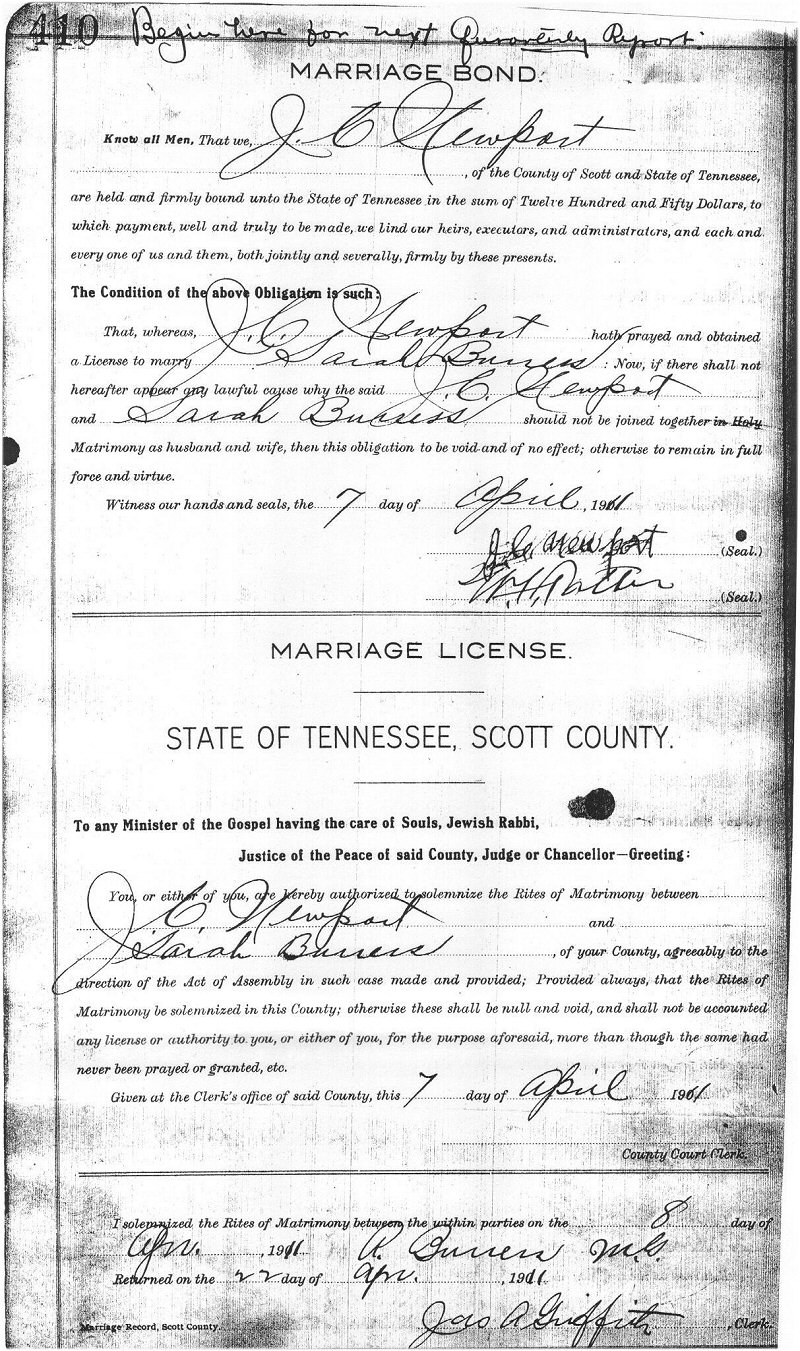 410 Begin here for next Quarterly Report.
MARRIAGE BOND.
Know all Men, That we, J. C. Newport
, of the County of Scott and State of Tennessee,
are held and firmly bound unto the State of Tennessee in the sum of Twelve Hundred and Fifty Dollars, to
which payment, well and truly to be made, we lind our heirs, executors, and administrators, and each and
every one of us and them, both jointly and severally, firmly by these presents.
The Condition of the above Obligation is such:
That, whereas, J. C. Newport hath prayed and obtained
a License to marry Sarah Burress : Now, if there shall not
hereafter appear any lawful cause why the said J. C. Newport
and Sarah Burress should not be joined together in Holy
Matrimony as husband and wife, then this obligation to be void and of no effect; otherwise to remain in full
force and virtue.
Witness our hands and seals, the 7 day of April , 1911
J. C. Newport (Seal.)
W. H. Potter (Seal.)
MARRIAGE LICENSE.
STATE OF TENNESSEE, SCOTT COUNTY.
To any Minister of the Gospel having the care of Souls, Jewish Rabbi,
Justice of the Peace of said County, Judge or Chancellor—Greeting:
You, or either of you, are hereby authorized to solemnize the Rites of Matrimony between
J. C. Newport and
Sarah Burress , of your County, agreeably to the
direction of the Act of Assembly in such case made and provided; Provided always, that the Rites of
Matrimony be solemnized in this County; otherwise these shall be null and void, and shall not be accounted
any license or authority to you, or either of you, for the purpose aforesaid, more than though the same had
never been prayed or granted, etc.
Given at the Clerk's office of said County, this 7 day of April 1911
County Court Clerk.
I solemnized the Rites of Matrimony between the within parties on the 8 day of
Apr. , 1911 R. Burress M.G.
Returned on the 22 day of Apr. , 1911.
Jas A Griffith , Clerk.
Marriage Record, Scott County.